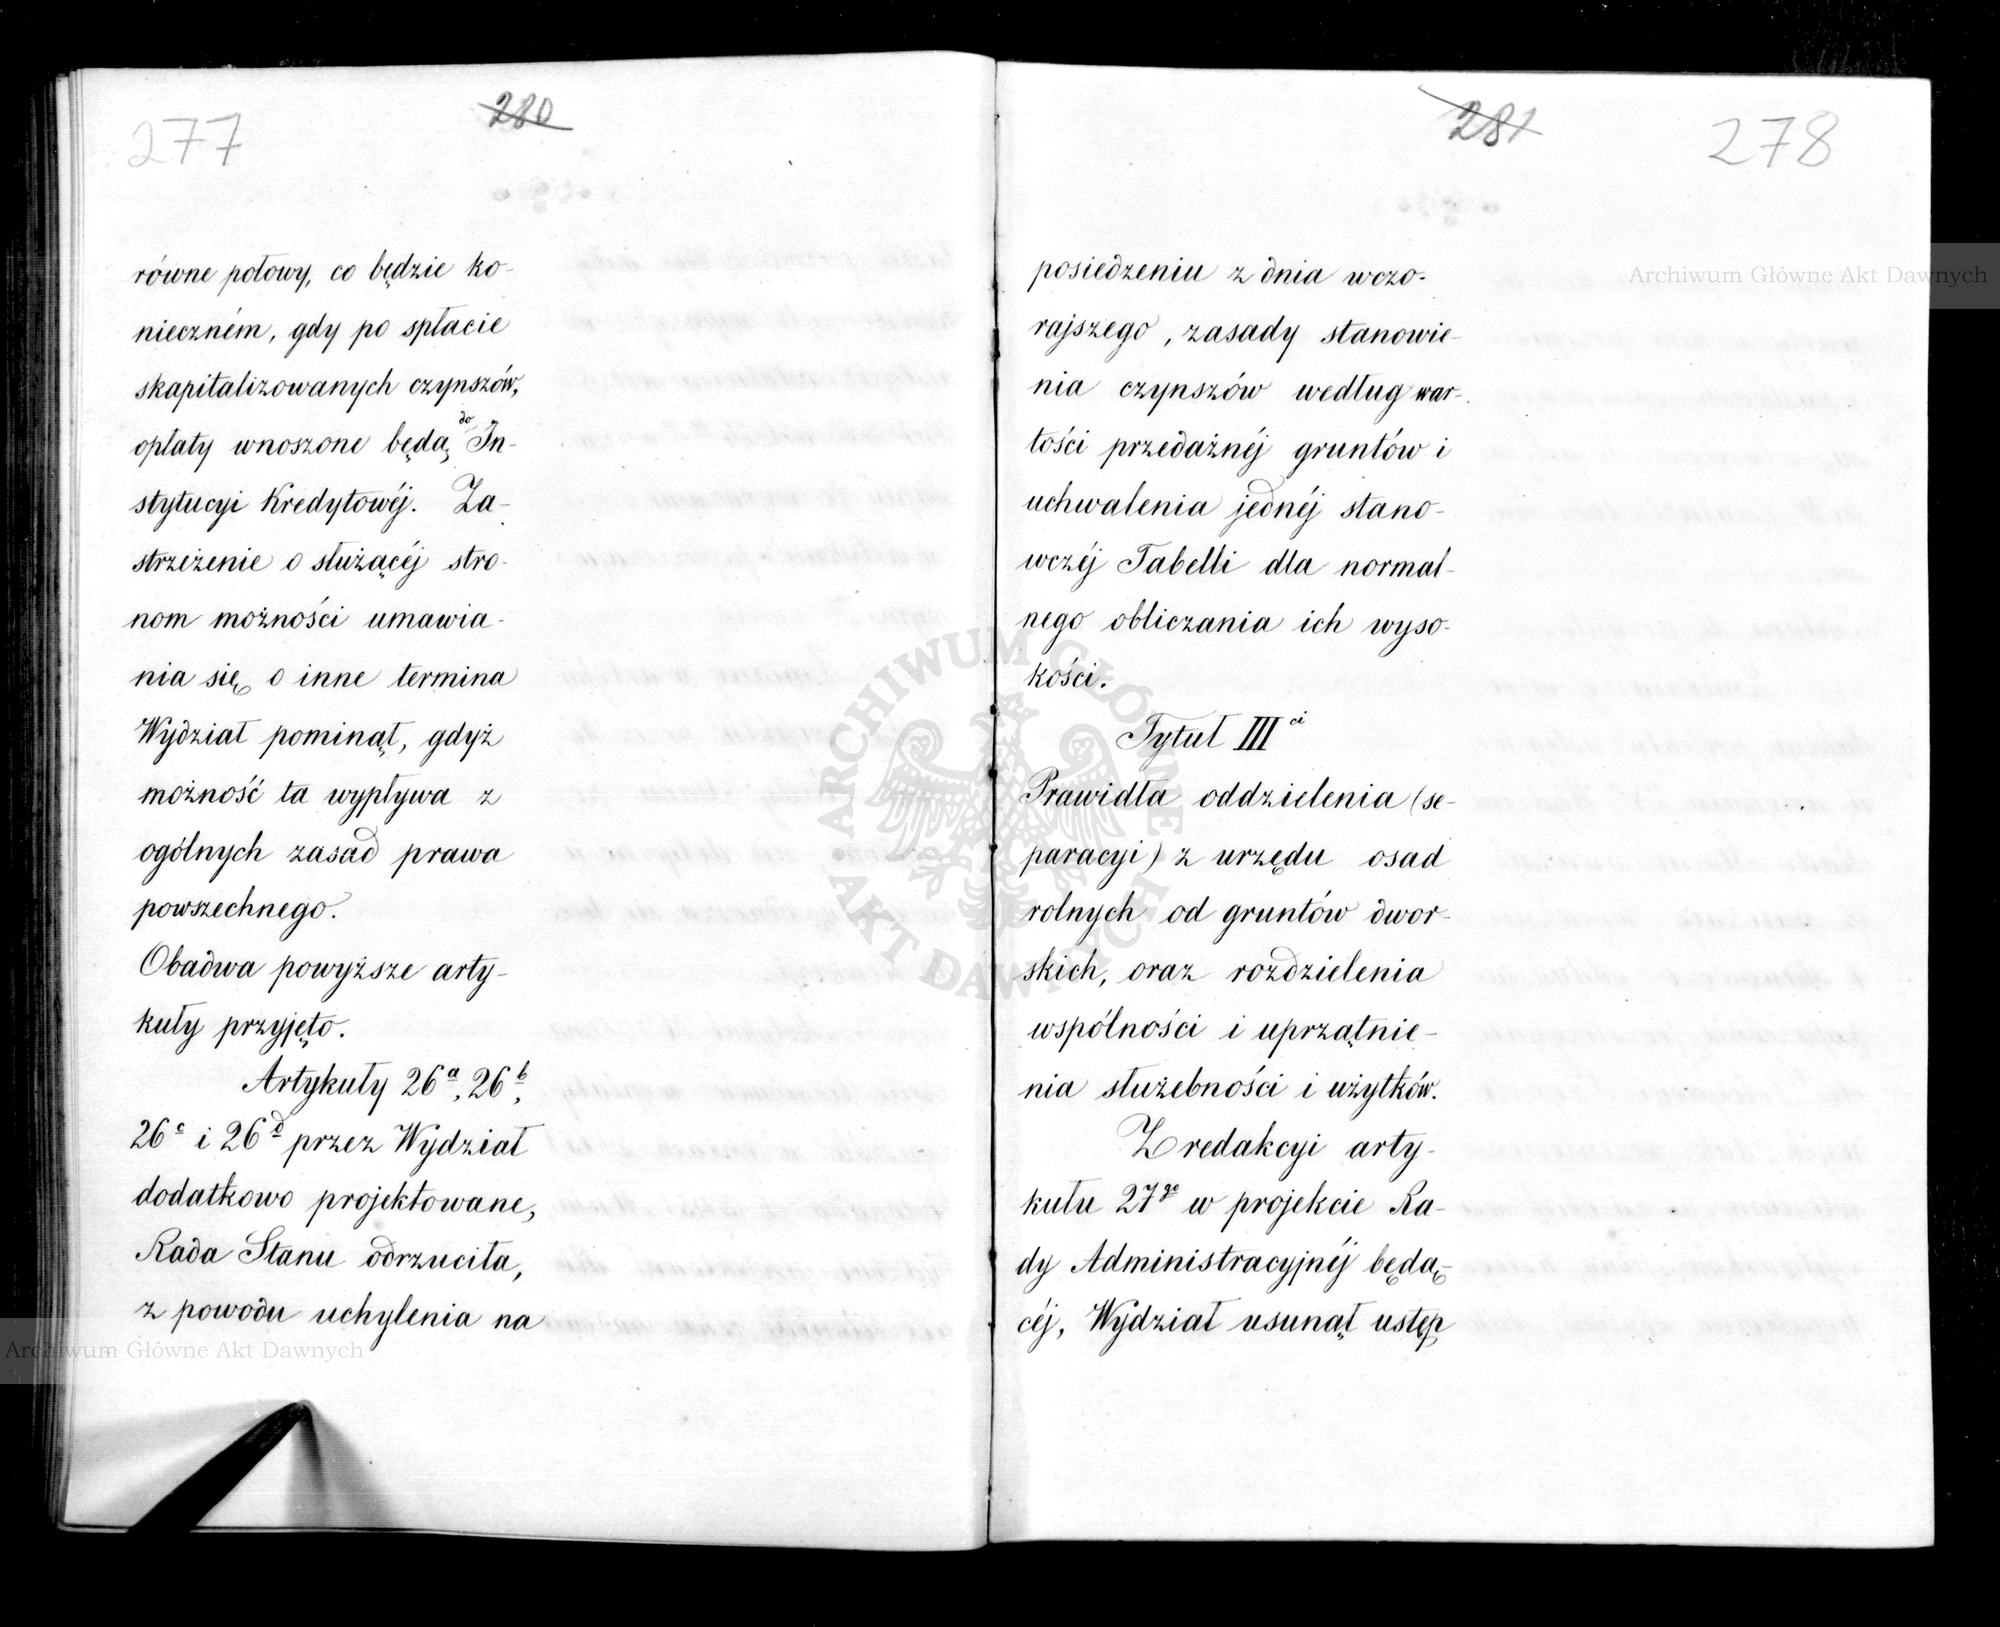 277
280
równe połowy, co będzie ko-
nieczném, gdy po spłacie
skapitalizowanych czynszów,
opłaty wnoszone będą do In-
stytucyi Kredytowéj. Za-
strzeżenie o służącéj stro-
nom możności umawia-
nia się o inne termina
Wydział pominął, gdyż
możność ta wypływa z
ogólnych zasad prawa
powszechnego.
Obadwa powyższe arty-
kuły przyjęto.
Artykuły 26a, 26b,
26c i 26d przez Wydział
dodatkowo projektowane,
Rada Stanu odrzuciła,
z powodu uchylenia na
281
278
posiedzeniu z dnia wczo-
rajszego, zasady stanowie-
nia czynszów według war-
tości przedażnéj gruntów i
uchwalenia jednéj stano-
wczéj Tabelli dla normal-
nego obliczania ich wyso-
kości.
Tytuł IIIci
Prawidła oddzielenia (se-
paracyi) z urzędu osad
rolnych od gruntów dwor-
skich, oraz rozdzielenia
wspólności i uprzątnie-
nia służebności i użytków.
Z redakcyi arty-
kułu 27go w projekcie Ra-
dy Administracyjnéj będą-
céj, Wydział usunął ustęp
Archiwum Główne Akt Dawnych
Archiwum Główne Akt Dawnych
ARCHIWUM GŁÓWNE AKT DAWNYCH